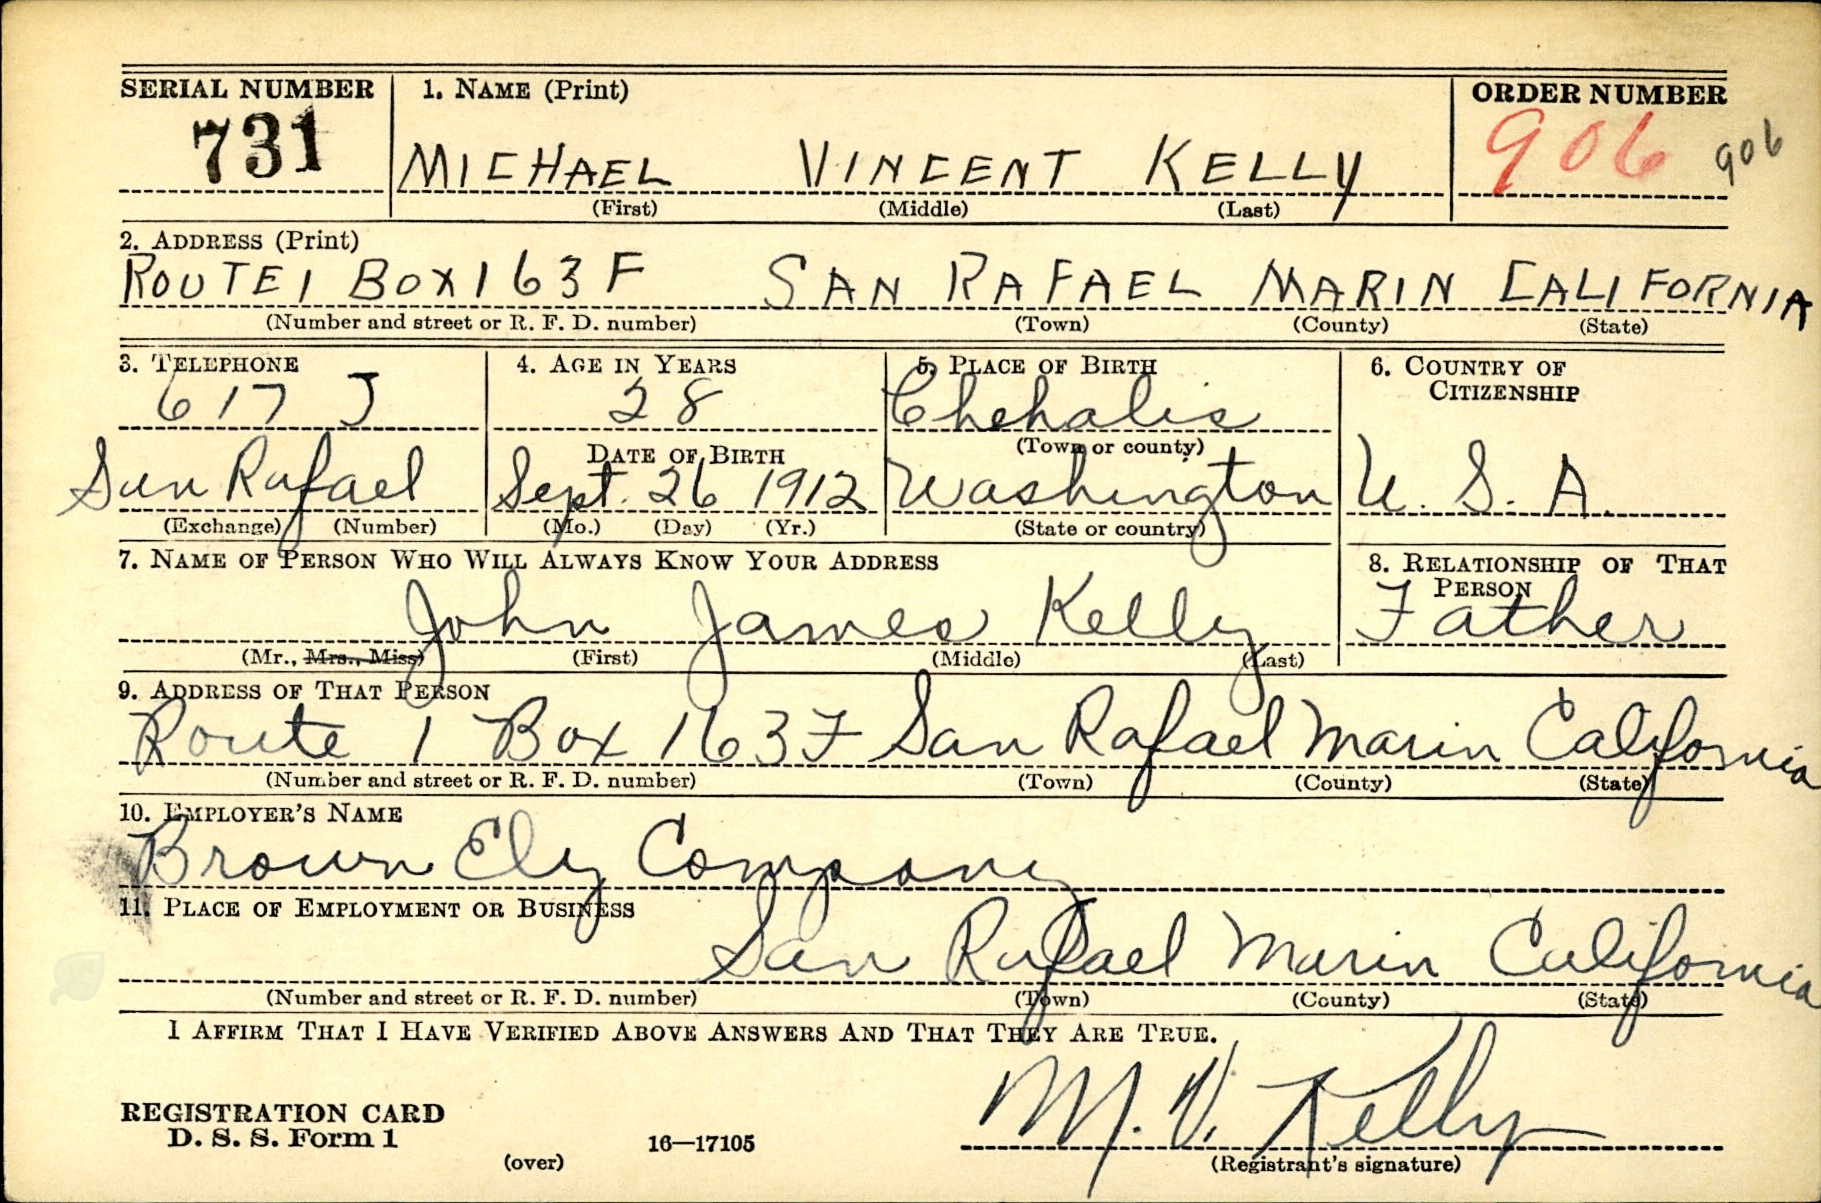 SERIAL NUMBER 1. NAME (Print) ORDER NUMBER
731 MICHAEL VINCENT KELLY 906 906
(First) (Middle) (Last)
2. ADDRESS (Print)
ROUTE 1 BOX 163 F SAN RAFAEL MARIN CALIFORNIA
(Number and street or R. F. D. number) (Town) (County) (State)
3. TELEPHONE 4. AGE IN YEARS 5. PLACE OF BIRTH 6. COUNTRY OF
CITIZENSHIP
617 J 28 Chehalis
DATE OF BIRTH (Town or county)
San Rafael Sept. 26 1912 Washington U. S. A.
(Exchange) (Number) (Mo.) (Day) (Yr.) (State or country)
7. NAME OF PERSON WHO WILL ALWAYS KNOW YOUR ADDRESS 8. RELATIONSHIP OF THAT
PERSON
John James Kelly Father
(Mr., Mrs., Miss) (First) (Middle) (Last)
9. ADDRESS OF THAT PERSON
Route 1 Box 163 F San Rafael Marin California
(Number and street or R. F. D. number) (Town) (County) (State)
10. EMPLOYER'S NAME
Brown Ely Company
11. PLACE OF EMPLOYMENT OR BUSINESS
San Rafael Marin California
(Number and street or R. F. D. number) (Town) (County) (State)
I AFFIRM THAT I HAVE VERIFIED ABOVE ANSWERS AND THAT THEY ARE TRUE.
M. V. Kelly
REGISTRATION CARD
D. S. S. Form 1 16—17105
(over) (Registrant's signature)